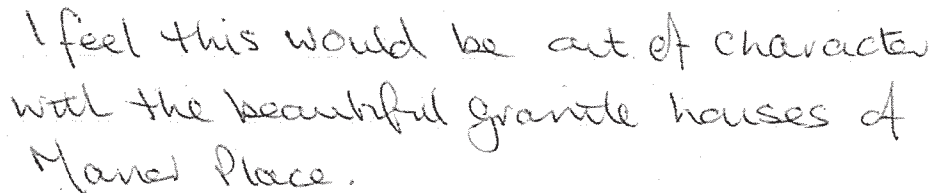 I feel this would be out of character
with the beautiful granite houses of
Manor Place.